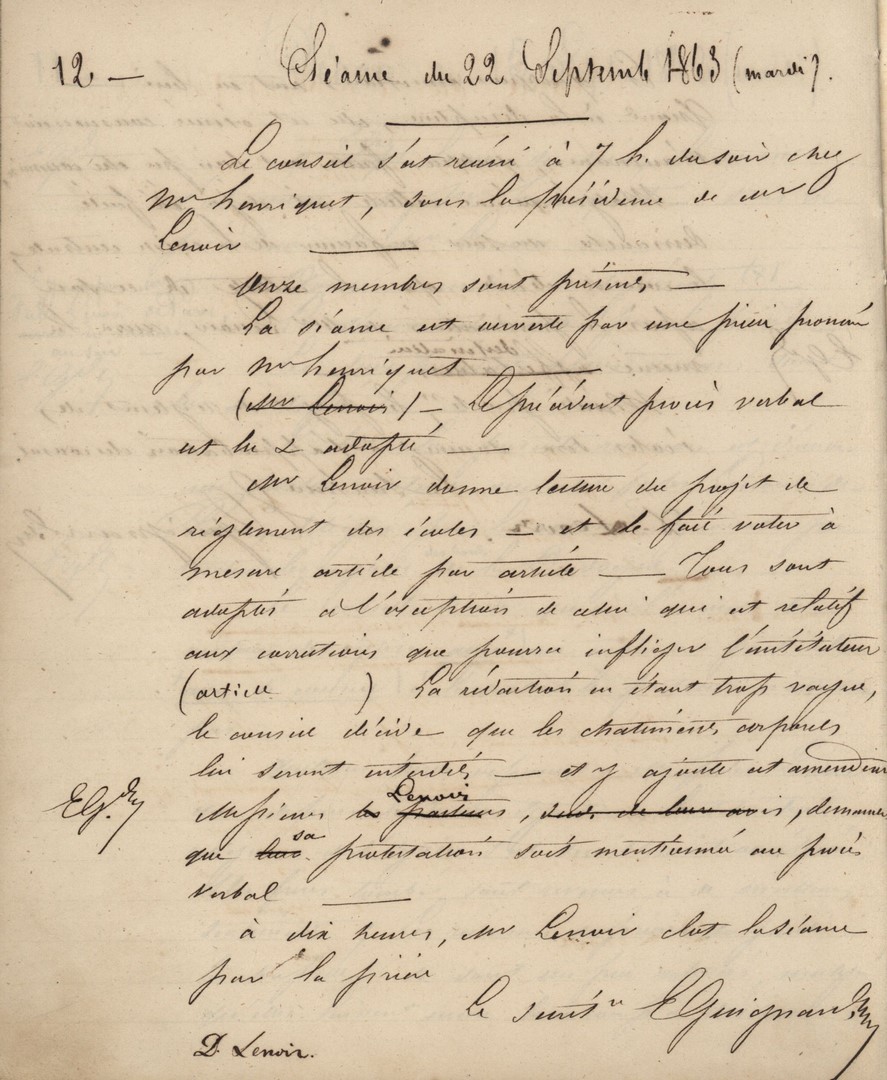 12 — Séance du 22 Septemb 1863 (mardi).
Le conseil s'est réuni à 7 h. du soir chez
Mr henriquet, sous la présidence de Mr
Lenoir —
Onze membres sont présents —
La séance est ouverte par une prière prononcée
par Mr henriquet —
(Mr Lenoir) — Le précédent procès verbal
est lu & adopté —
Mr Lenoir donne lecture du projet de
règlement des écoles — et le fait voter à
mesure article par article — Tous sont
adoptés à l'exception de celui qui est relatif
aux corrections que pourra infliger l'instituteur
(article ) La rédaction en étant trop vague,
le conseil décide que les châtiments corporels
lui seront interdits — et y ajoute cet amendement
Lenoir
EG.dry Messieurs les pasteurs, de leur avis, demande
sa
que leur protestation soit mentionnée au procès
verbal —
à dix heures, Mr Lenoir clot la séance
par la prière
Le secrét re E Guignard
D. Lenoir.